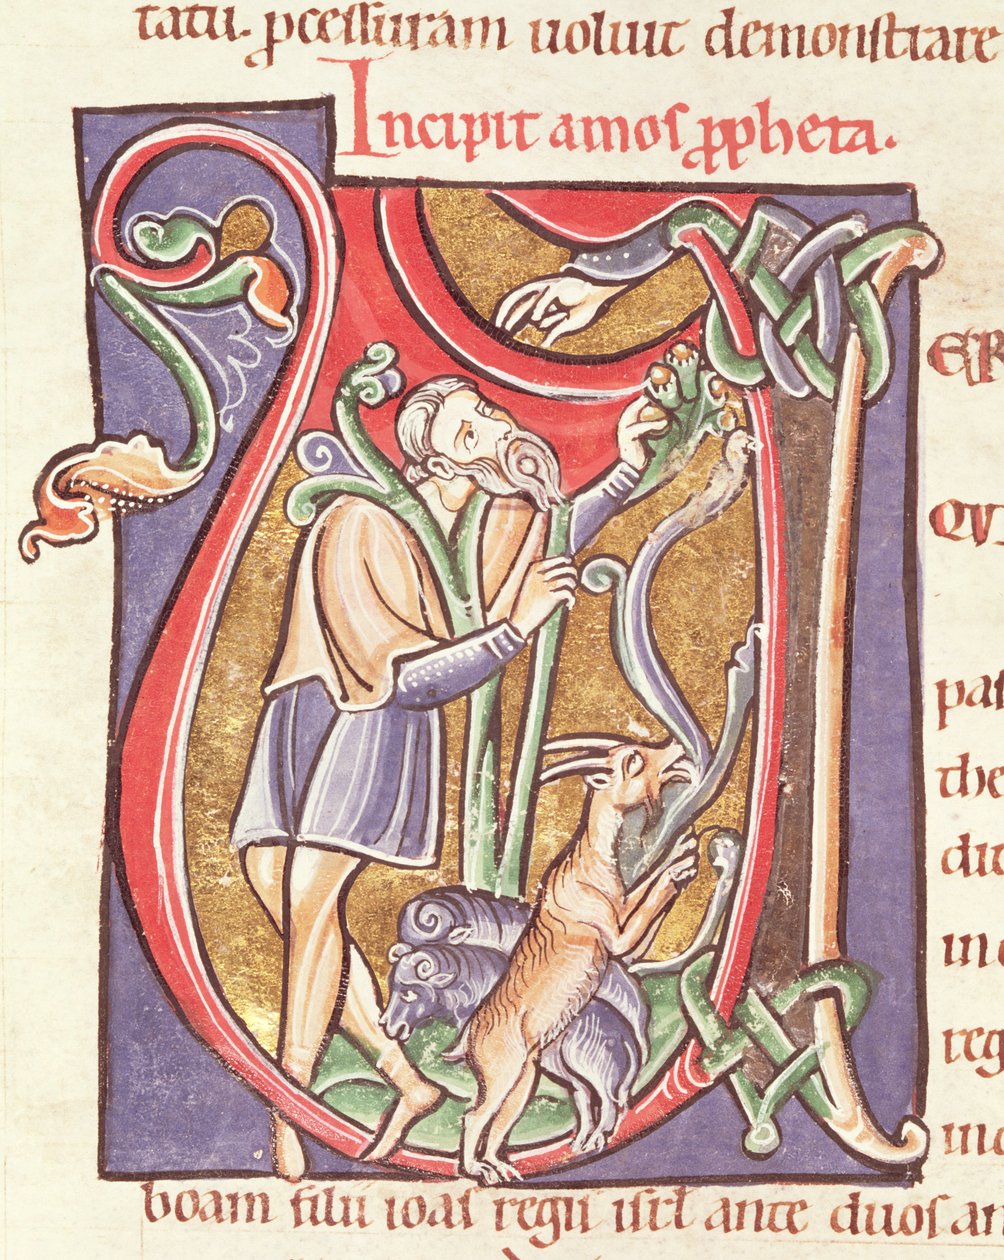 tatu. pcessuram uoluit demonstrare
Incipit amos ppheta.
V
ER
QVI
pas
the
dit
in
reg
ino
boam filii ioas regis isrl ante duos an